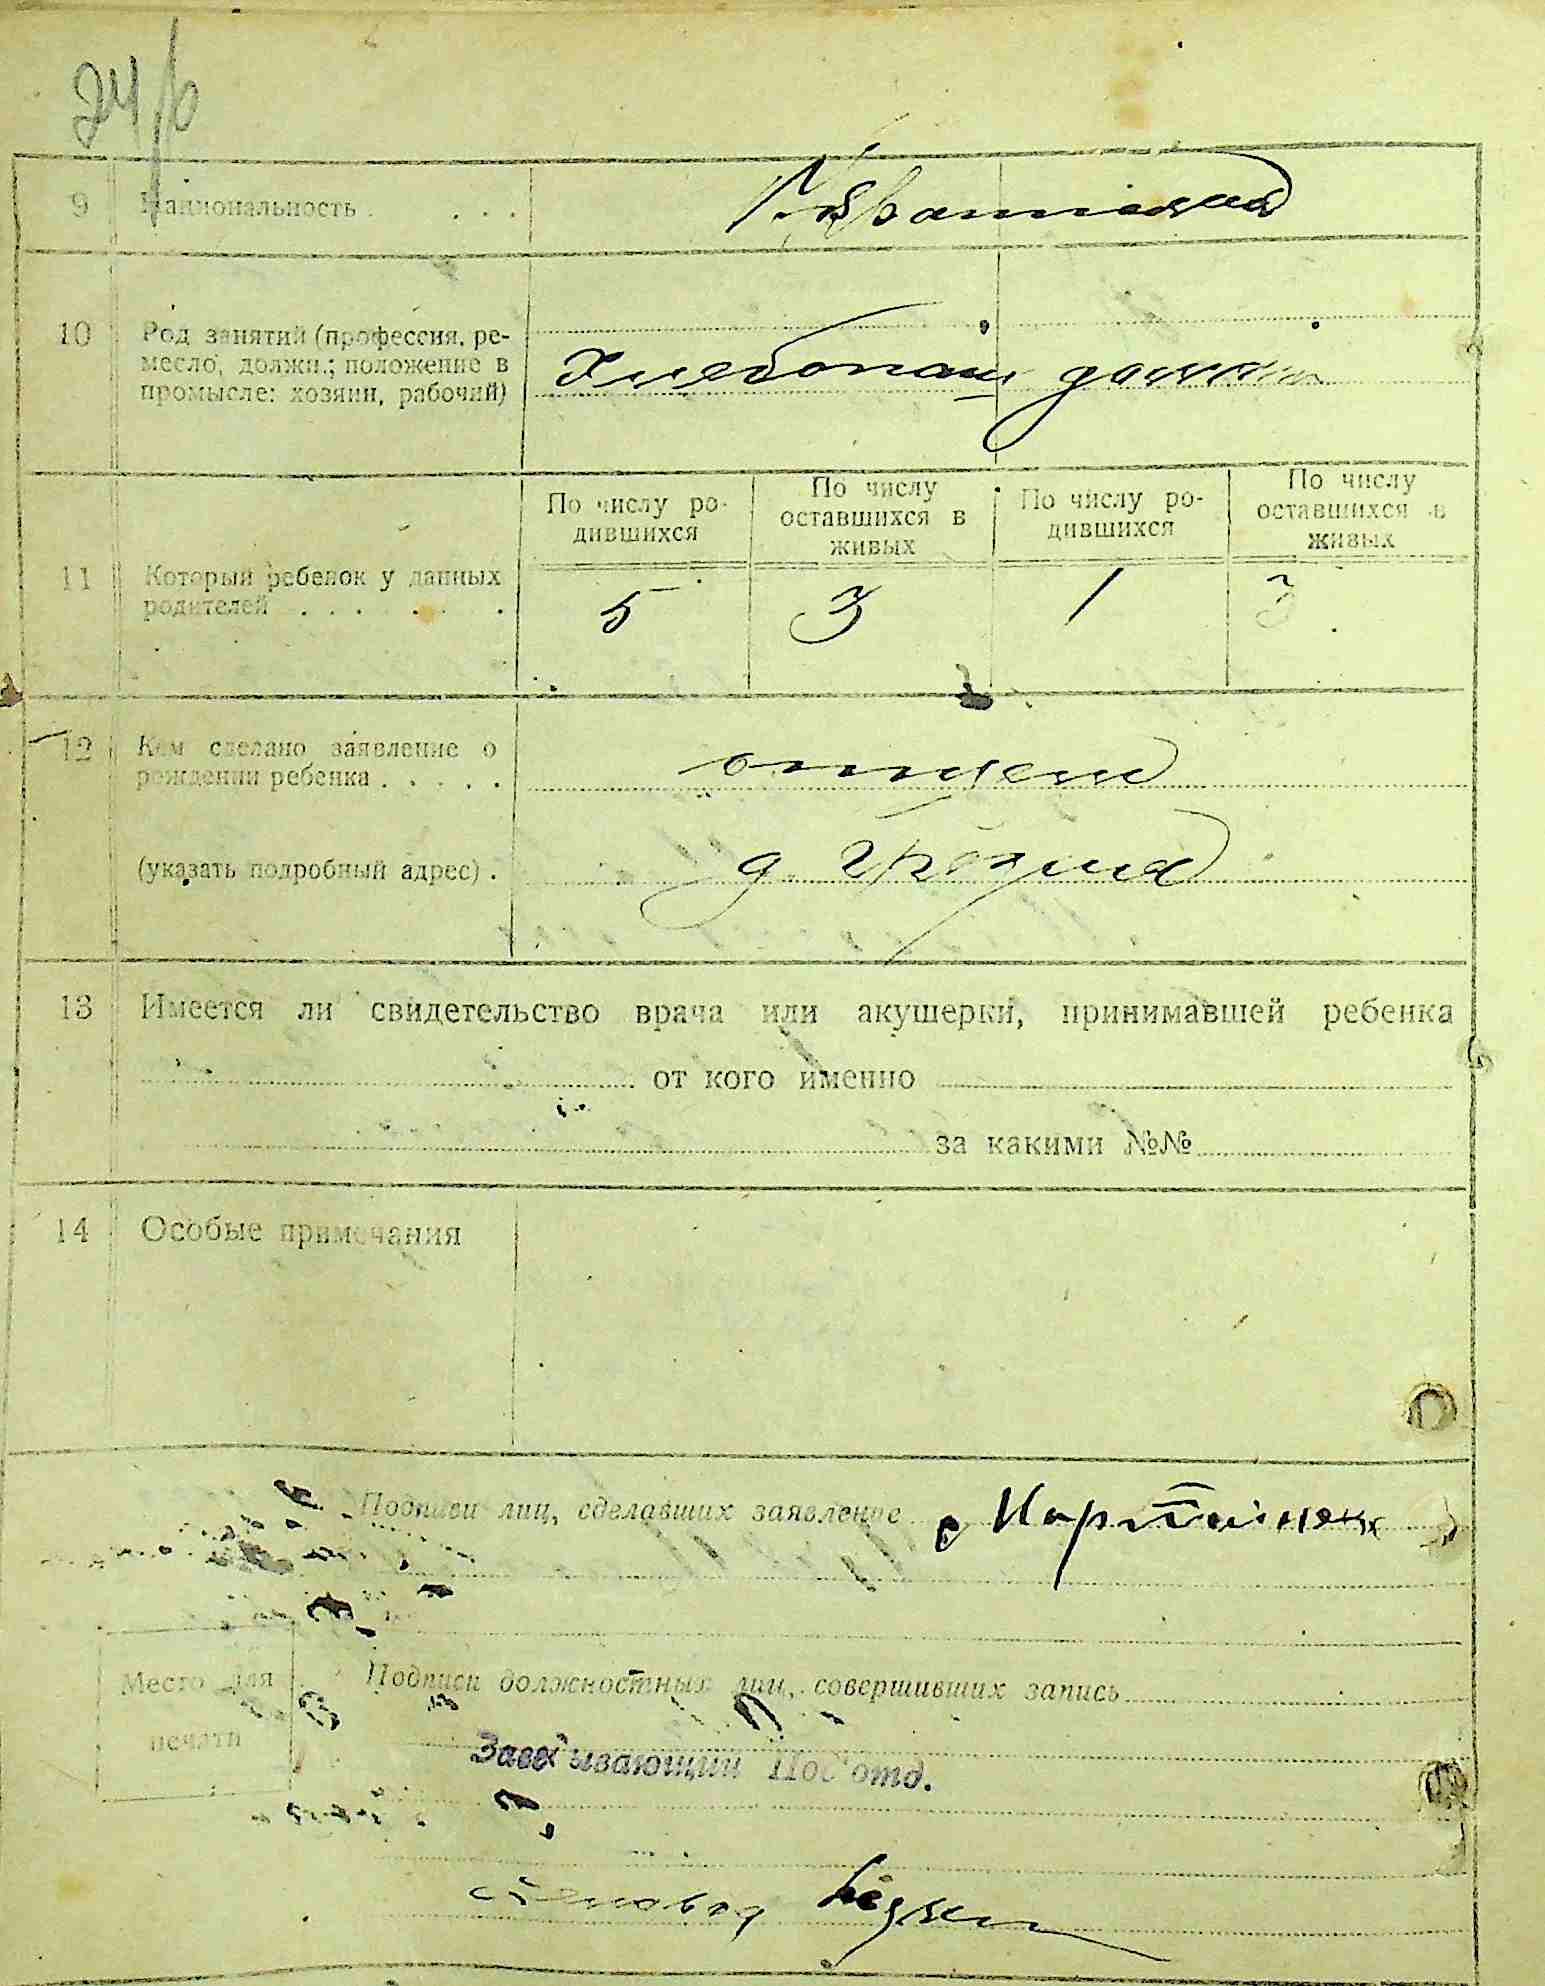 24
9 Национальность . . . .
10 Род занятий (профессия, ре-
месло, должн.; положение в
промысле: хозяин, рабочий)
Хлебопаш дома
11 Который ребенок у данных
родителей . . . . . .
По числу ро-
дившихся
По числу
оставшихся в
живых
По числу ро-
дившихся
По числу
оставшихся в
живых
5 3 1 3
12 Кем сделано заявление о
рождении ребенка . . . . .
отцем
(указать подробный адрес) .
д.
13 Имеется ли свидетельство врача или акушерки, принимавшей ребенка
от кого именно
за какими №№
14 Особые примечания
Подписи лиц, сделавших заявление
Место для
печати
Подписи должностных лиц, совершивших запись
Заведывающий Под'отд.